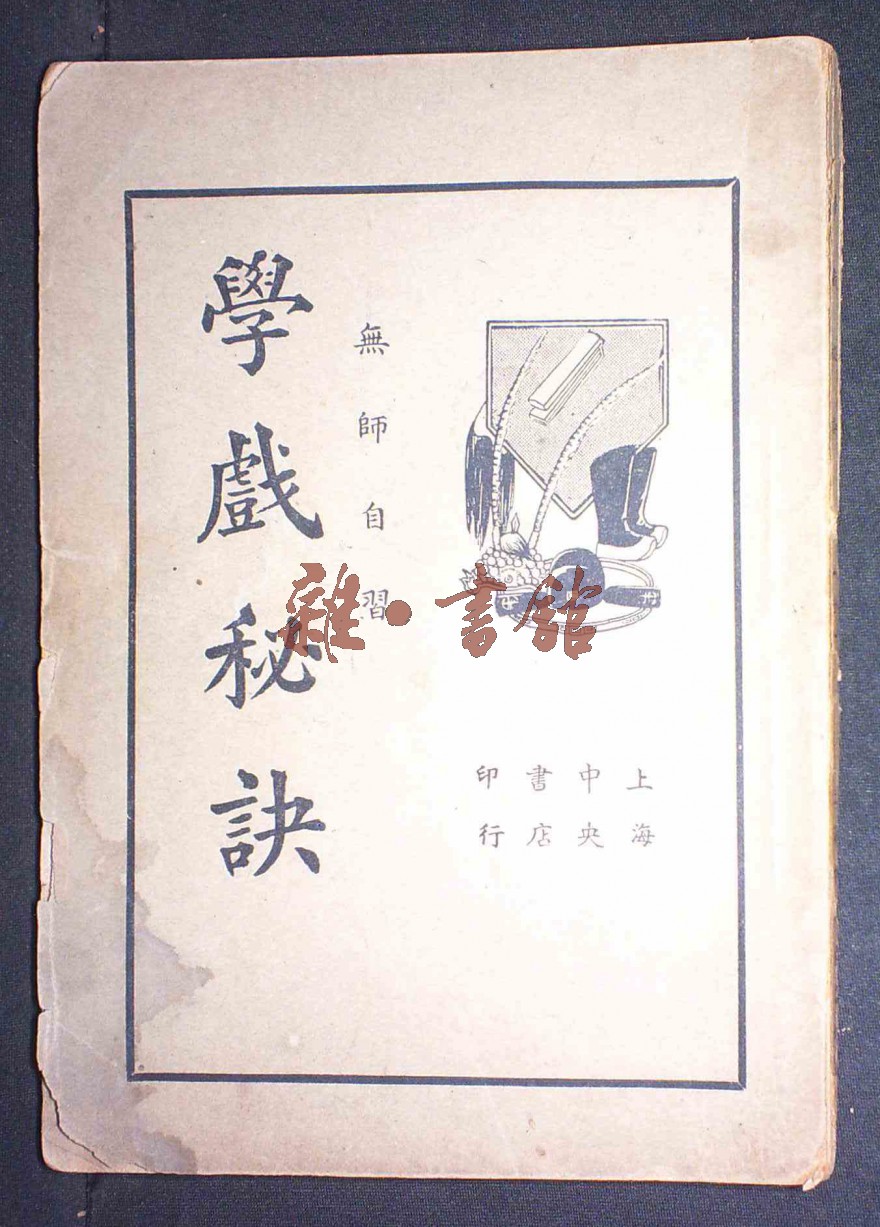 上海
中央
書店
印行
無師自習
學戲秘訣
雜·書館